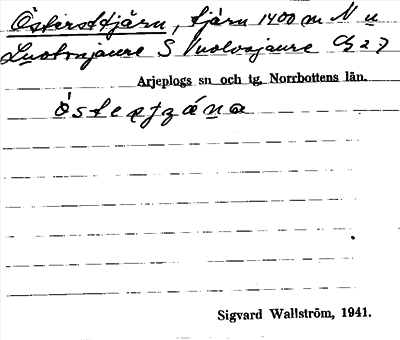 Östersttjärn, tjärn 1400 m N u
Luotvajaure S Vuolvojaure Gz 27
Arjeplogs sn och tg, Norrbottens län.
Sigvard Wallström, 1941.